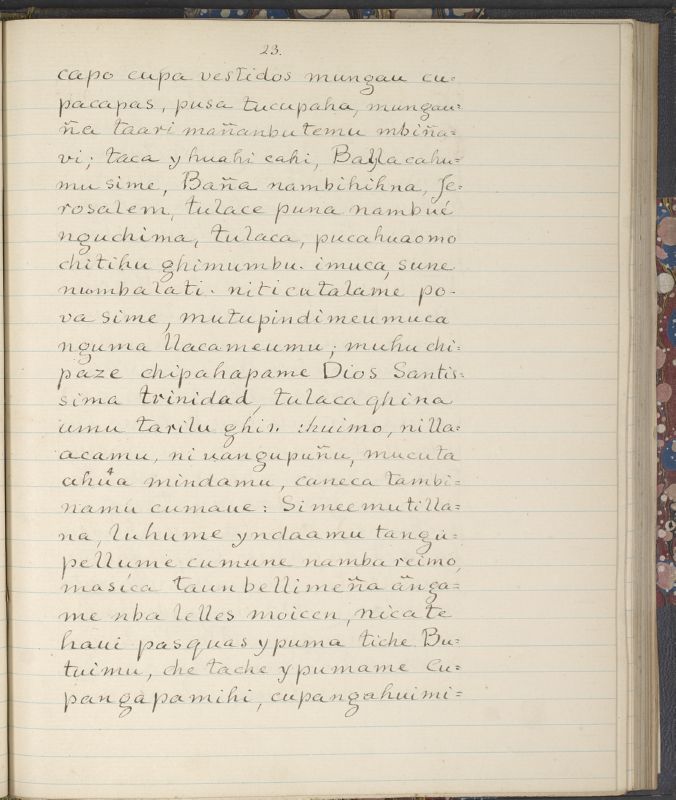 23.
capo cupa vestidos mungau cu=
pacapas, pusa tucupaha, mungau=
ña taari mañanbutemu mbiña=
vi; taca yhuahi cahi, Ballacahu=
mu sime, Baña nambihihna, Je=
rosalem, tulace puna nambué
nguchima, tulaca, pucahuaomo
chitihu ghimumbu. imuca, sune
numbalati. niticutalame po-
va sime, mutupindimeumuca
nguma llacameumu; muhuchi=
paze chipahapame Dios Santis=
sima trinidad, tulacaghina
umu tarilu :huimo, nilla=
acamu, niuangupuñu, mucuta
mindamu, caneca tambi=
namu cumaue: Simeemutilla=
na, luhume yndaamu tangu=
pellume cumune nambareimo,
masica taunbellimeña änga=
me nba lelles moicen, nicate
haui pasquas ypuma tiche Bu=
tuimu, che tache ypumame Cu=
pangapamihi, cupangahuimi=